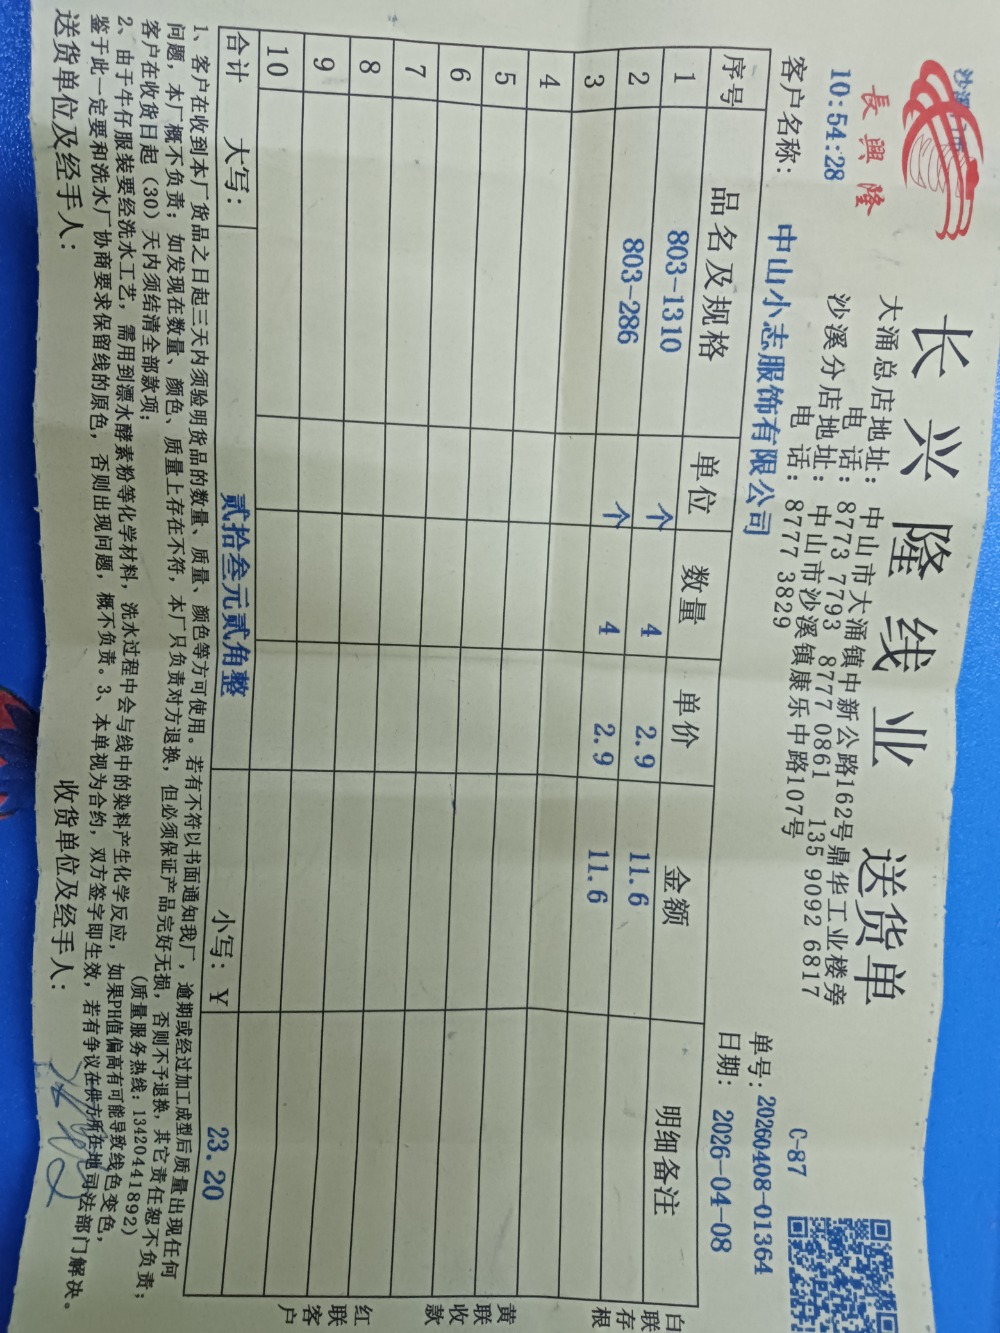 長興隆
长兴隆线业 送货单
大涌总店地址：中山市大涌镇中新公路162号鼎华工业楼旁
电 话：8773 7793 8777 0861 135 9092 6817
沙溪分店地址：中山市沙溪镇康乐中路107号
电 话：8777 3829
10:54:28
C-87
单号：20260408-01364
客户名称：中山小志服饰有限公司
日期：2026-04-08
序号 品名及规格 单位 数量 单价 金额 明细备注
1 803-1310 个 4 2.9 11.6
2 803-286 个 4 2.9 11.6
3
4
5
6
7
8
9
10
合计 大写： 贰拾叁元贰角整 小写：￥ 23.20
白联存根
黄联收款
红联客户
1、客户在收到本厂货品之日起三天内须验明货品的数量、质量、颜色等方可使用。若有不符以书面通知我厂，逾期或经过加工成型后质量出现任何
问题，本厂概不负责；如发现在数量、颜色、质量上存在不符，本厂只负责对方退换，但必须保证产品完好无损，否则不予退换，其它责任恕不负责；
客户在收货日起（30）天内须结清全部款项； （质量服务热线：13420441892）
2、由于牛仔服装要经洗水工艺，需用到漂水酵素粉等化学材料，洗水过程中会与线中的染料产生化学反应，如果PH值偏高有可能导致线色变色，
鉴于此一定要和洗水厂协商要求保留线的原色，否则出现问题，概不负责。3、本单视为合约，双方签字即生效，若有争议在供方所在地司法部门解决。
送货单位及经手人： 收货单位及经手人：